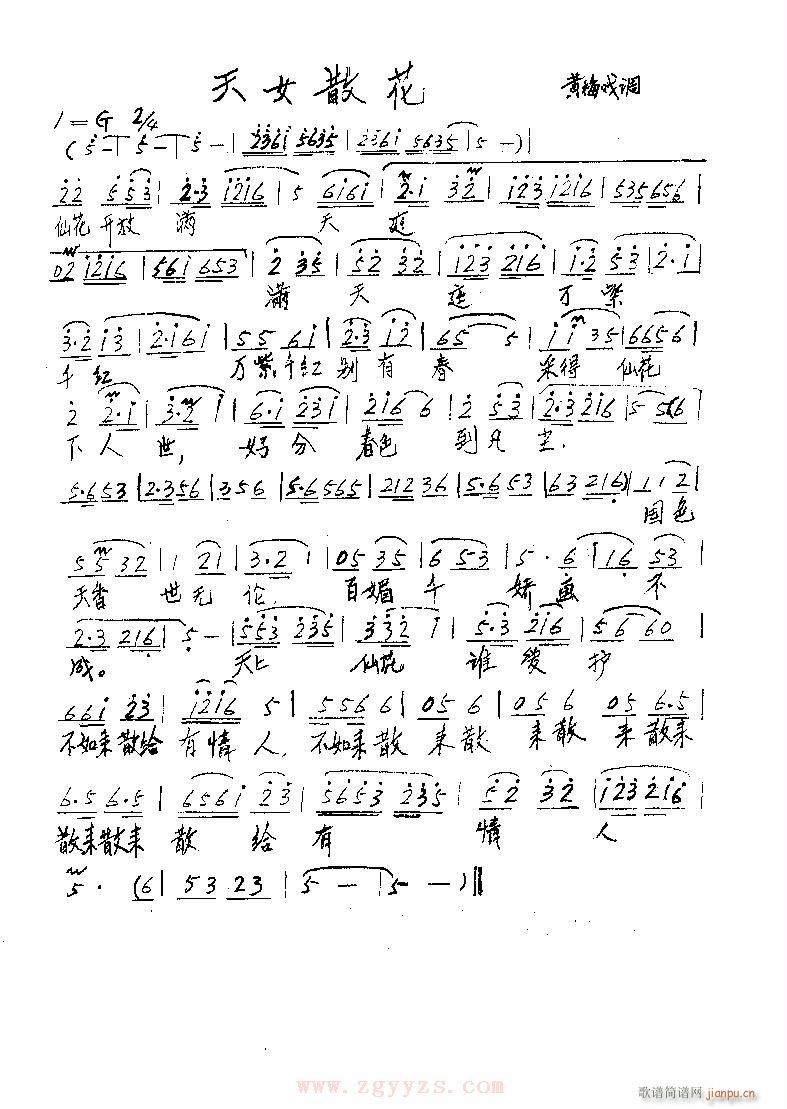 天女散花 黄梅戏调
1=G 2/4
(5-|5-|5-|2361 5635|2361 5635|5-)|
22 553|2·3 1216|5 6161|2·1 32|123 1216|535656|
仙花开放 满 天 庭
02 1216|561 653|2 35|52 32|123 216|1·2 53|2·1
满 天 庭 万 紫
3·2 13|2·161|55 61|2·3 12|65 5|11 35|6656|
千红 万紫千红别有春 采得 仙花
2 2·1|3·2 1|6·1 231|216 6|2 53|2·3 216|5 5(6|
下人世, 好分 春色 到凡尘.
5·653|2·356|356|5·6565|2123 6|5·6 53|63 216)|1 12|
国色
55 32|1 21|3·2 1|05 35|6 53|5· 6|16 53|
天香 世无伦. 百媚千 娇画 不
2·3 216|5-|553 235|332 1|5·3 216|56 60|
成。 天上 仙花 谁爱护
661 23|1216 5|556 6|05 6|05 6 05 6·5|
不如来散给有情人,不如来散 来散 来散 来散来
6·5 6·5|6561 23|5653 235|52 32|123 216|
散来散来 散 给 有 情 人
5· (6|53 23|5-|5-)‖
www.zgyyzs.com
歌谱简谱网 jianpu.cn